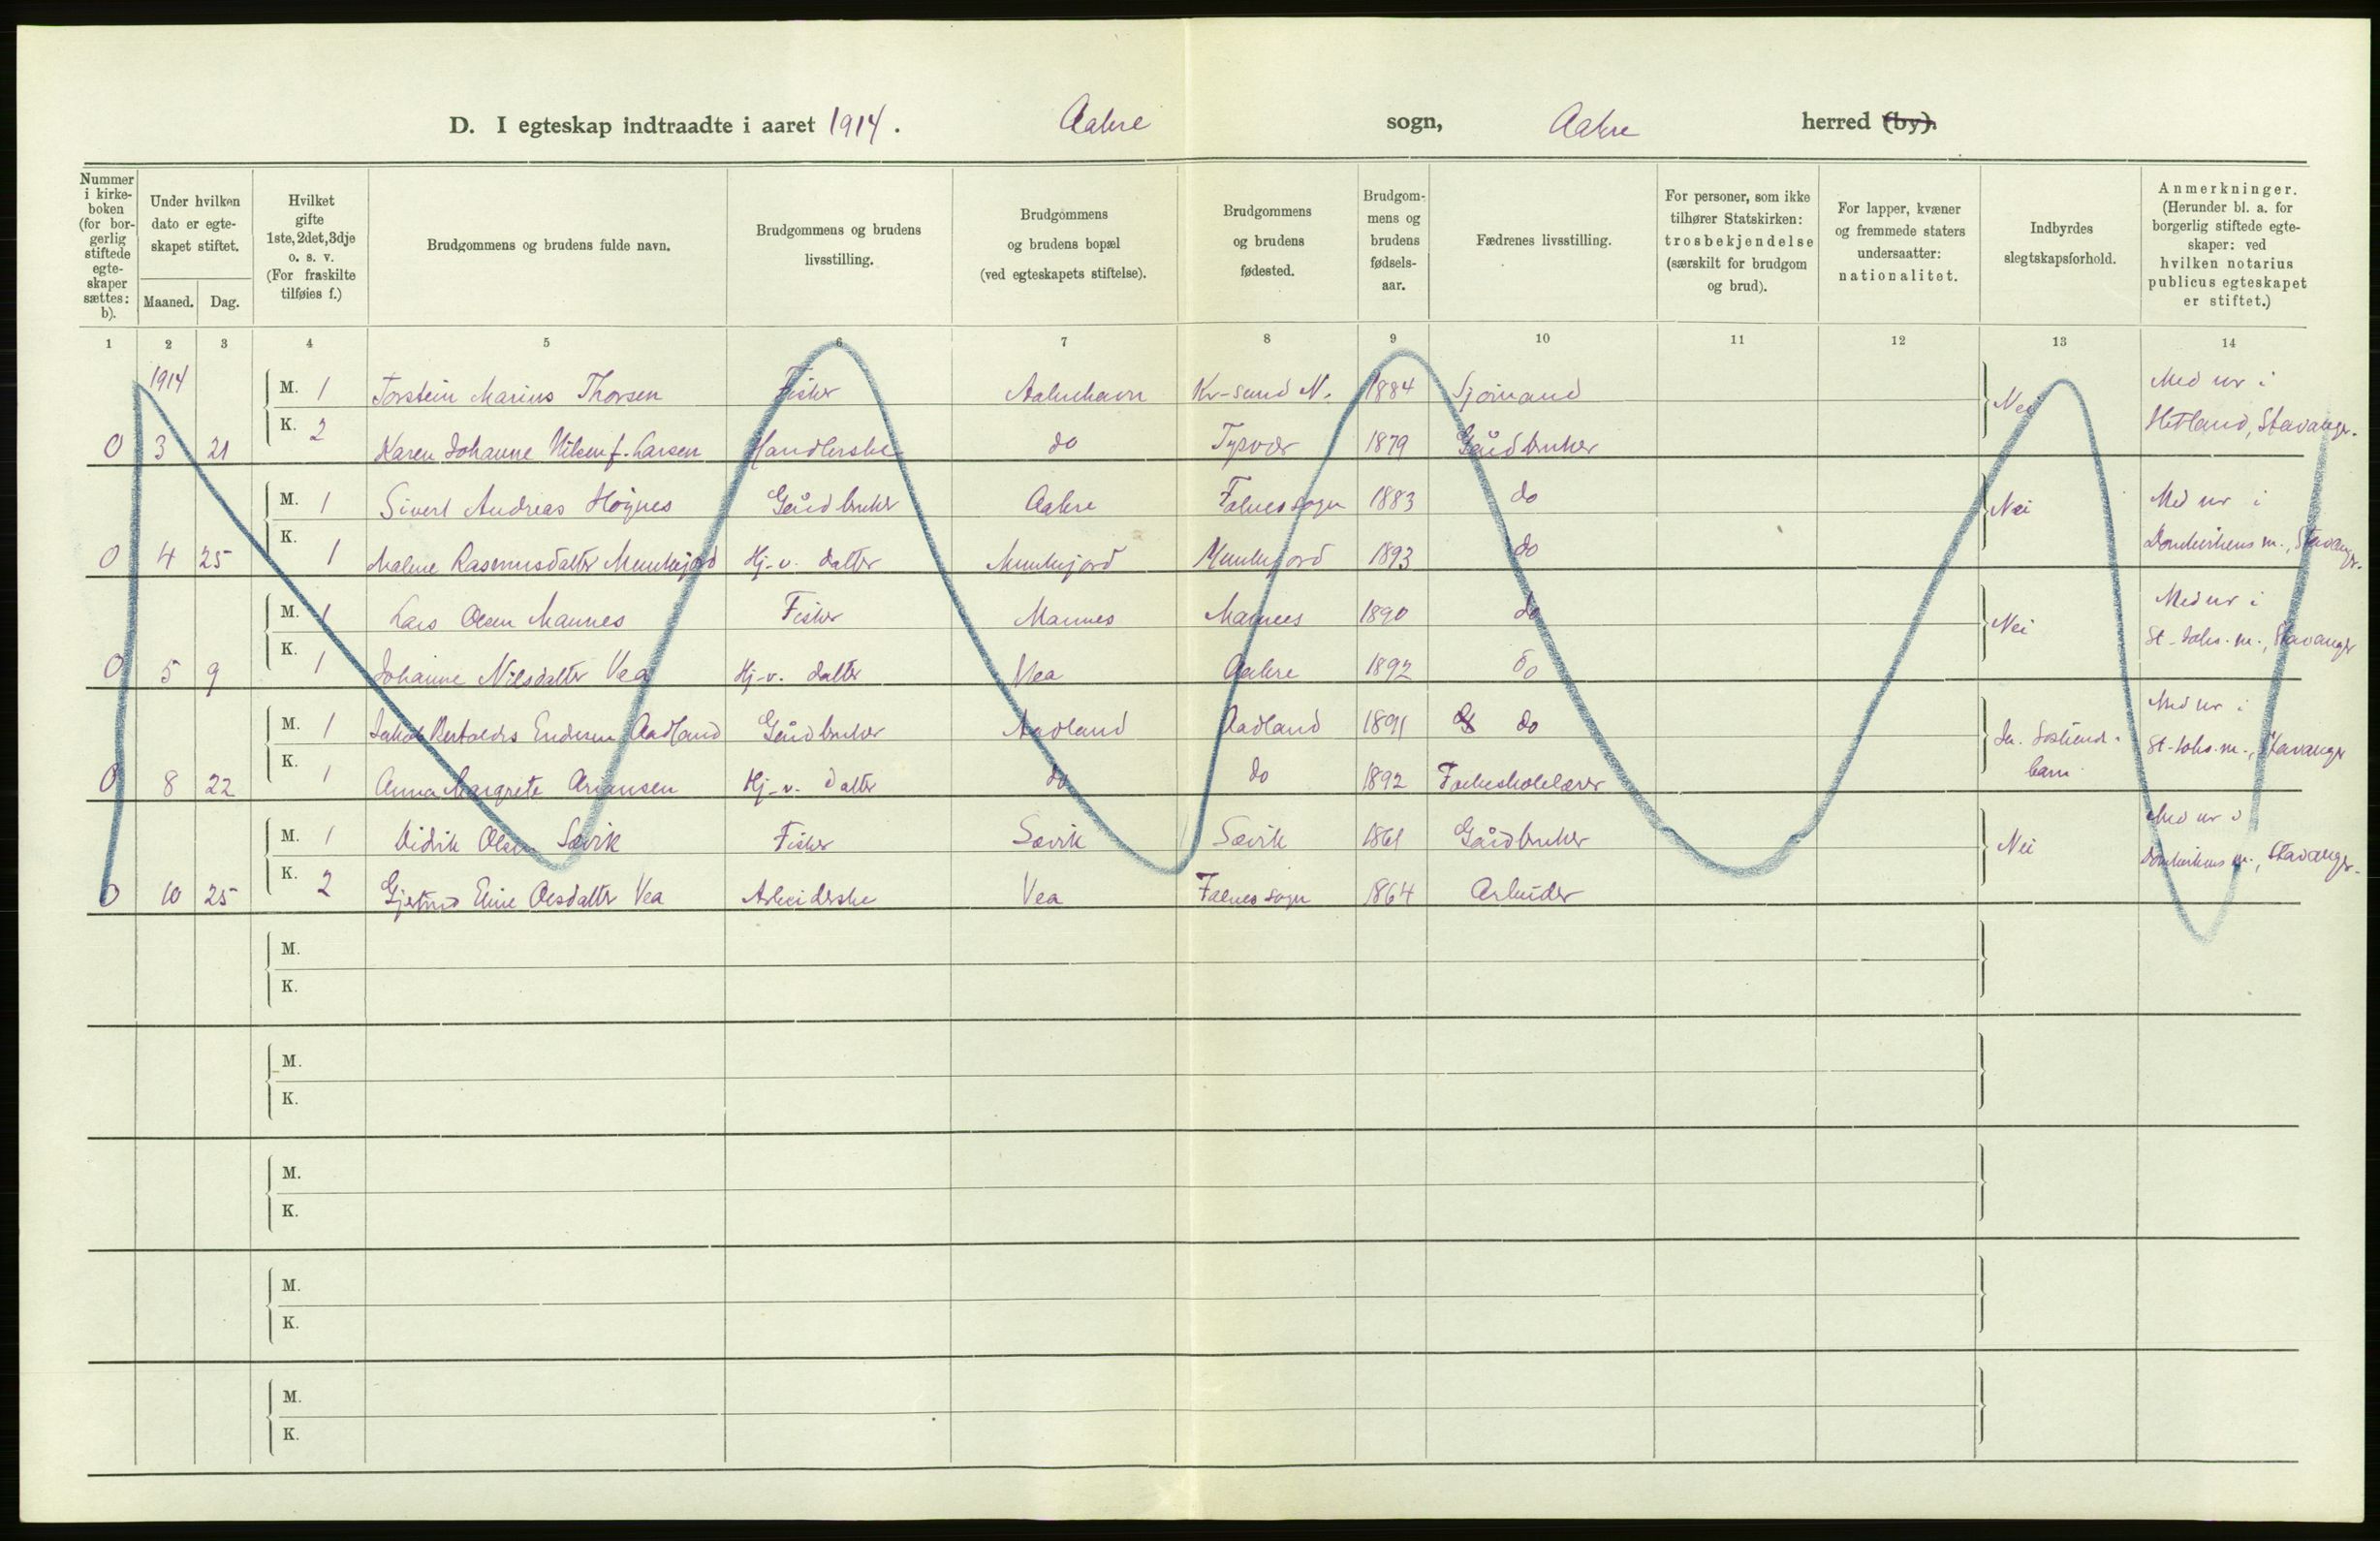 D. I egteskap indtraadte i aaret 1914. Aakre sogn, Aakre herred (by).
Nummer i kirke-boken (for bor-gerlig stiftede egte-skaper sættes: b).
Under hvilken dato er egte-skapet stiftet.
Maaned. Dag.
Hvilket gifte 1ste, 2det, 3dje o. s. v. (For fraskilte tilføies f.)
Brudgommens og brudens fulde navn.
Brudgommens og brudens livsstilling.
Brudgommens og brudens bopæl (ved egteskapets stiftelse).
Brudgommens og brudens fødested.
Brudgom-mens og brudens fødsels-aar.
Fædrenes livsstilling.
For personer, som ikke tilhører Statskirken: trosbekjendelse (særskilt for brudgom og brud).
For lapper, kvæner og fremmede staters undersaatter: nationalitet.
Indbyrdes slegtskapsforhold.
Anmerkninger. (Herunder bl. a. for borgerlig stiftede egte-skaper: ved hvilken notarius publicus egteskapet er stiftet.)
1 2 3 4 5 6 7 8 9 10 11 12 13 14
1914 M. 1 Torstein Marius Thorsen Fisker Aakrehavn Kr-sund N. 1884 Sjømand Nei Med nr i
0 3 21 K. 2 Karen Johanne Nilsen f. Larsen Handlerske do Tysvær 1879 Gårdbruker Hetland, Stavanger.
M. 1 Sivert Andreas Høynes Gårdbruker Aakre Falnes sogn 1883 do Nei Med nr i
0 4 25 K. 1 Malene Rasmusdatter Munkejord Hj-v. datter Munkejord Munkejord 1893 do Domkirkens m., Stavanger.
M. 1 Lars Olsen Mannes Fisker Mannes Mannes 1890 do Nei Med nr i
0 5 9 K. 1 Johanne Nilsdatter Vea Hj-v. datter Vea Aakre 1892 do St-Johs. m., Stavanger
M. 1 Jakob Endresen Aadland Gårdbruker Aadland Aadland 1891 do Med nr i
0 8 22 K. 1 Anna Margrete Ariansen Hj-v. datter do do 1892 Folkeskolelærer barn St-Johs. m., Stavanger
M. 1 Didrik Olsen Sævik Fisker Sævik Sævik 1861 Gårdbruker Nei Med nr i
0 10 25 K. 2 Gjertrud Eline Olsdatter Vea Arbeiderske Vea Falnes sogn 1864 Arbeider Domkirkens m., Stavanger.
M.
K.
M.
K.
M.
K.
M.
K.
M.
K.